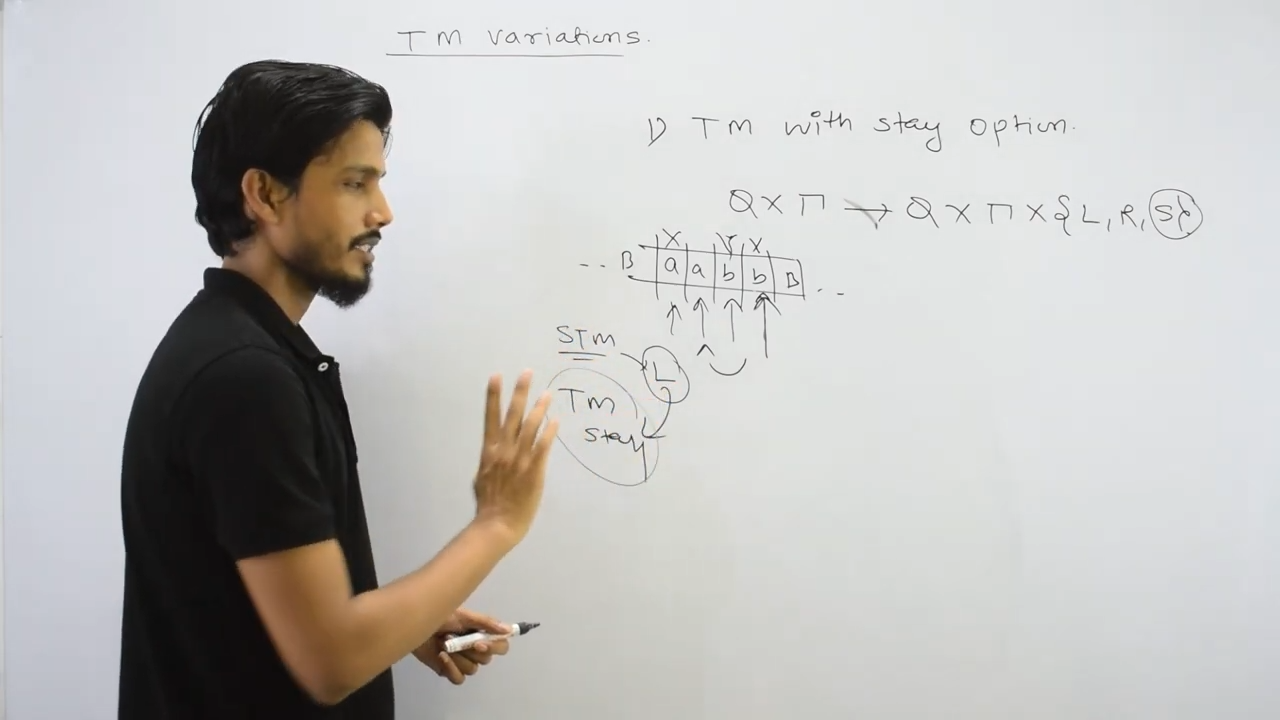 TM variations.
1) TM with stay option.
Q X Π → Q X Π X { L, R, S}
X Y X
-- B a a b b B --
STM
L
TM
stay